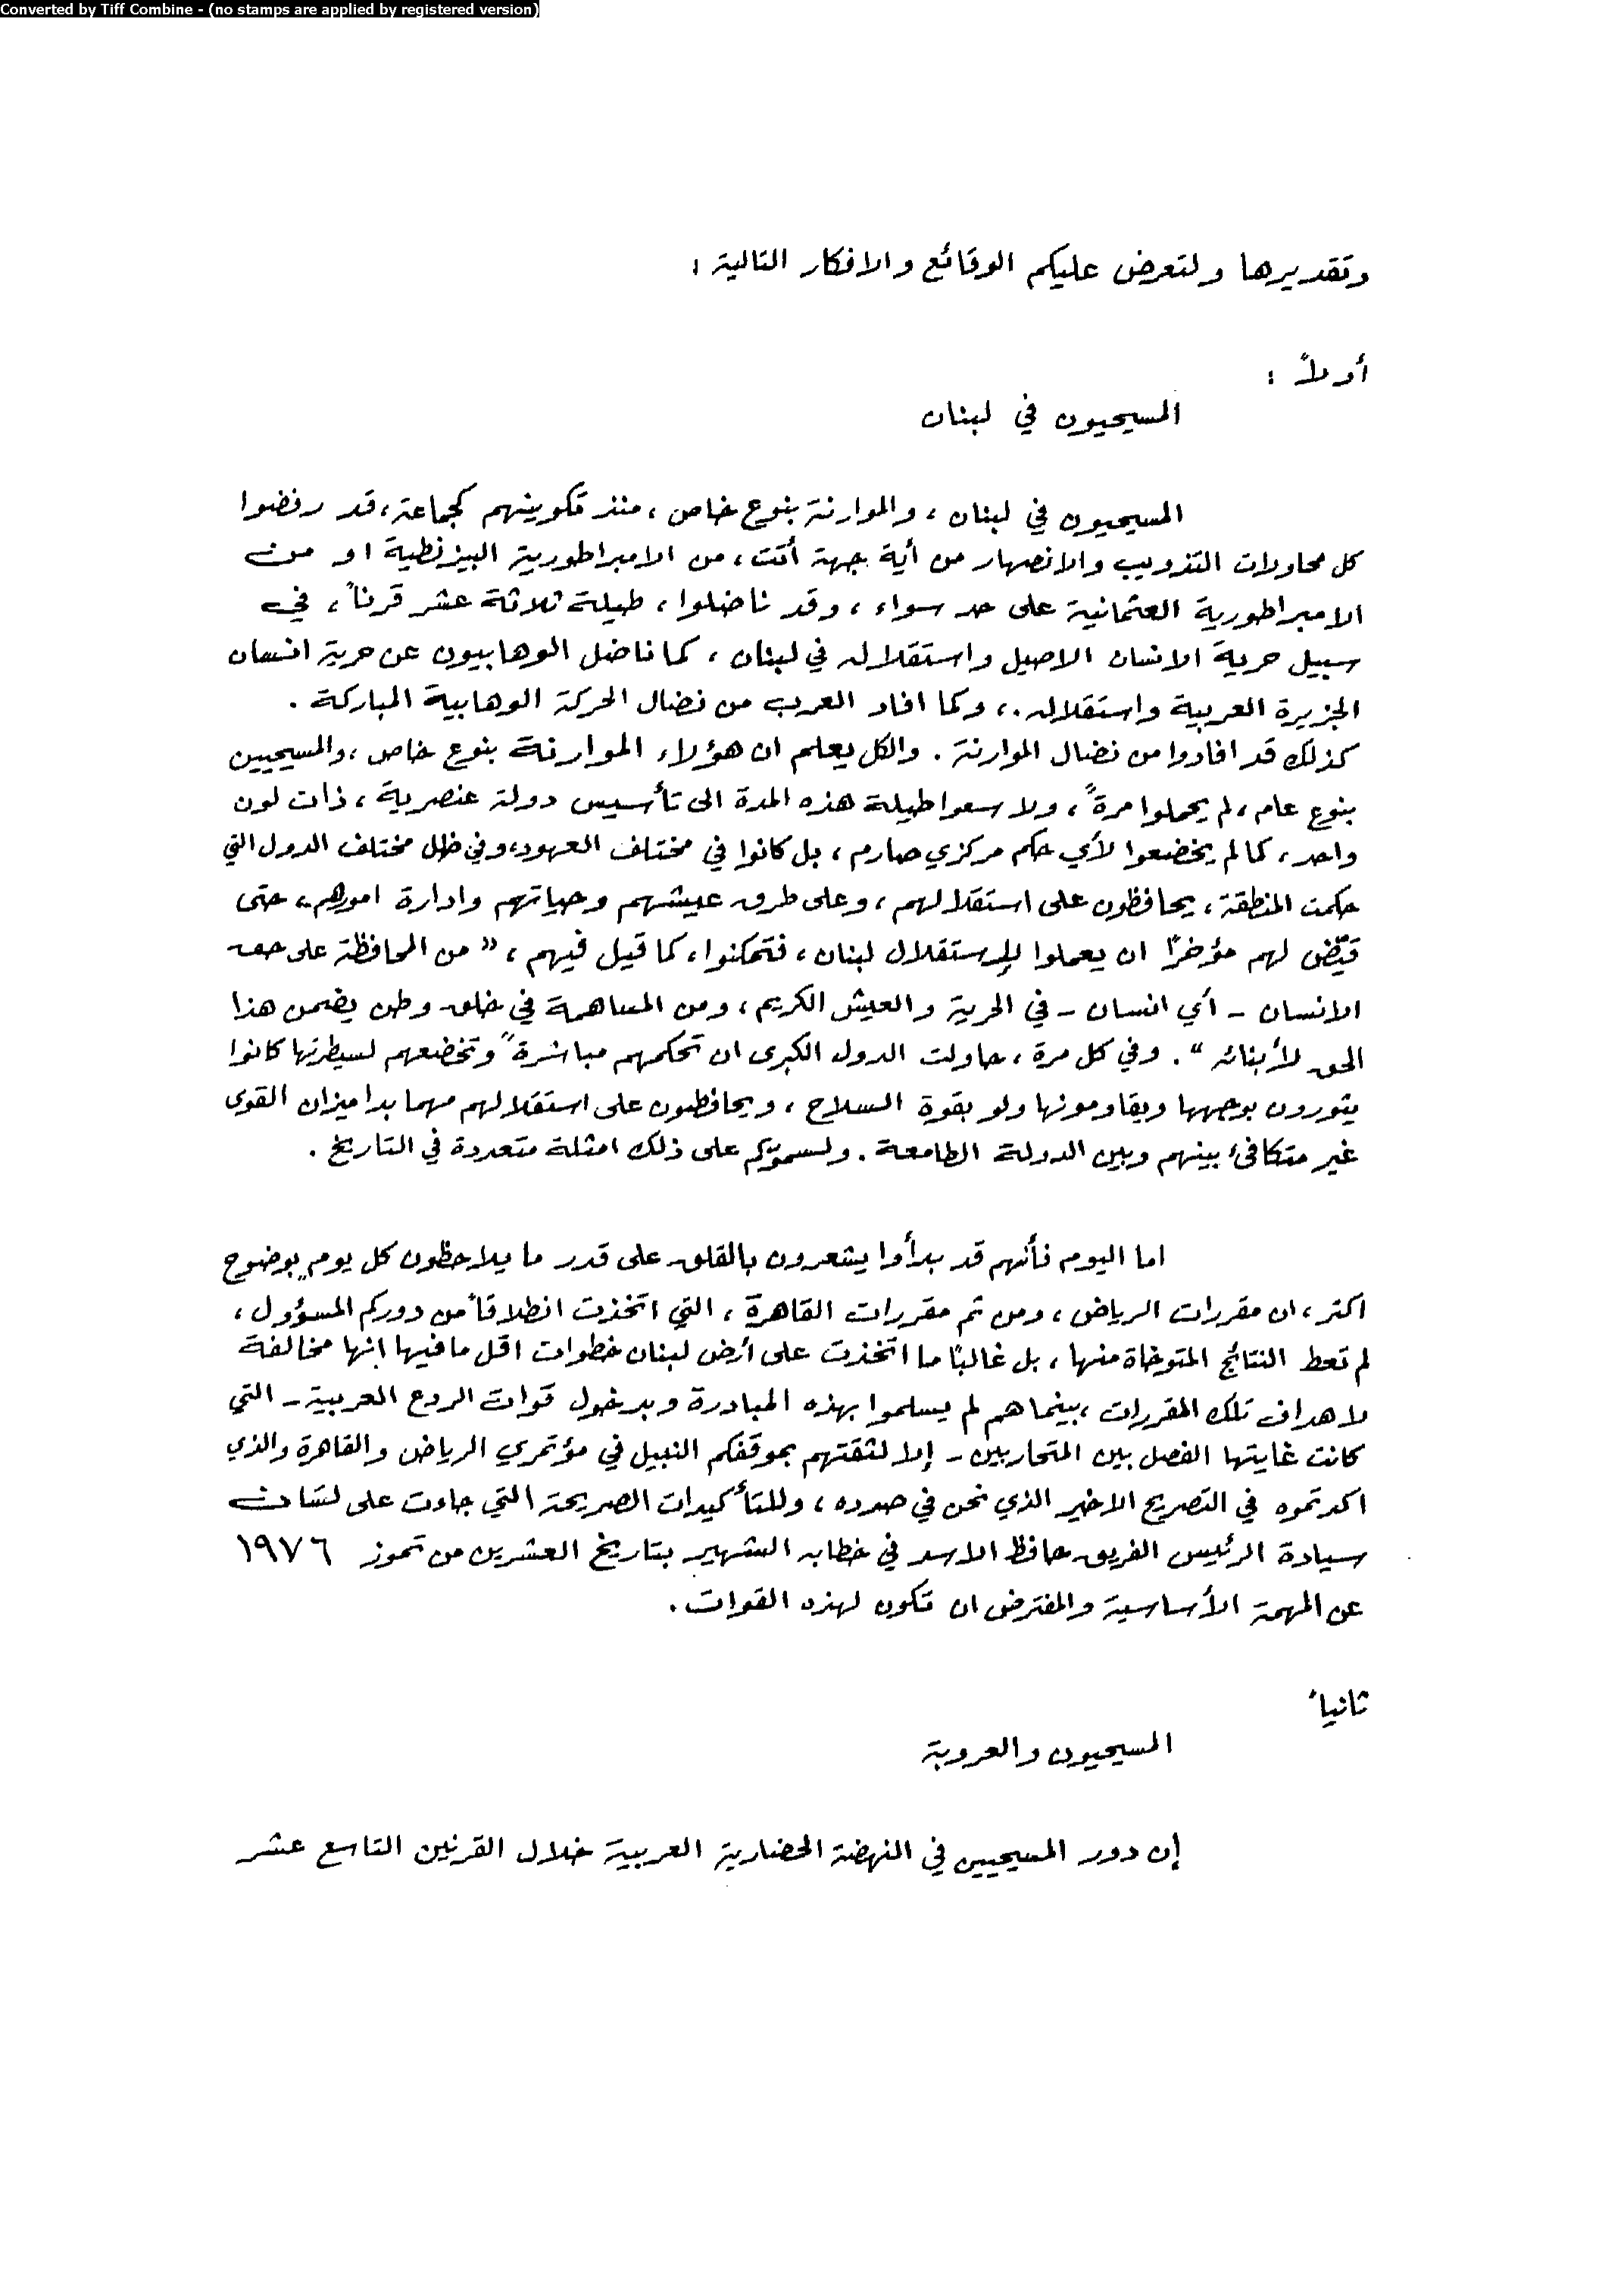 Converted by Tiff Combine - (no stamps are applied by registered version)
وتقديرها ولتعرض عليكم الوقائع والافكار التالية :
أولاً :
المسيحيون في لبنان
المسيحيون في لبنان ، والموارنة بنوع خاص ، منذ تكوينهم كجماعة ، قد رفضوا
كل محاولات التذويب والانصهار من أية جهة أتت ، من الامبراطورية البيزنطية او من
الامبراطورية العثمانية على حد سواء ، وقد ناضلوا ، طيلة ثلاثة عشر قرناً ، في
سبيل حرية الانسان الاصيل واستقلاله في لبنان ، كما ناضل الوهابيون عن حرية انسان
الجزيرة العربية واستقلاله .، وكما افاد العرب من نضال الحركة الوهابية المباركة .
كذلك قد افادوا من نضال الموارنة . والكل يعلم ان هؤلاء الموارنة بنوع خاص ، والمسيحيين
بنوع عام ، لم يحملوا مرةً ، ولا سعوا طيلة هذه المدة الى تأسيس دولة عنصرية ، ذات لون
واحد ، كما لم يخضعوا لأي حكم مركزي صارم ، بل كانوا في مختلف العهود ، وفي ظل مختلف الدول التي
حكمت المنطقة ، يحافظون على استقلالهم ، وعلى طرق عيشهم وحياتهم وادارة امورهم ، حتى
قيّض لهم مؤخراً ان يعملوا لإستقلال لبنان ، فتمكنوا ، كما قيل فيهم ، " من المحافظة على حق
الانسان - أي انسان - في الحرية والعيش الكريم ، ومن المساهمة في خلق وطن يضمن هذا
الحق لأبنائه " . وفي كل مرة ، حاولت الدول الكبرى ان تحكمهم مباشرةً وتخضعهم لسيطرتها كانوا
يثورون بوجهها ويقاومونها ولو بقوة السلاح ، ويحافظون على استقلالهم مهما بدا ميزان القوى
غير متكافئ بينهم وبين الدولة الطامعة . ولسموّكم على ذلك امثلة متعددة في التاريخ .
اما اليوم فأنهم قد بدأوا يشعرون بالقلق على قدر ما يلاحظون كل يومٍ بوضوح
اكثر ، ان مقررات الرياض ، ومن ثم مقررات القاهرة ، التي اتخذت انطلاقاً من دوركم المسؤول ،
لم تعط النتائج المتوخاة منها ، بل غالباً ما اتخذت على أرض لبنان خطوات اقل ما فيها انها مخالفة
لاهداف تلك المقررات ، بينما هم لم يسلموا بهذه المبادرة وبدخول قوات الردع العربية - التي
كانت غايتها الفصل بين المتحاربين - إلا لثقتهم بموقفكم النبيل في مؤتمري الرياض والقاهرة والذي
اكدتموه في التصريح الاخير الذي نحن في صدده ، وللتأكيدات الصريحة التي جاءت على لسان
سيادة الرئيس الفريق حافظ الاسد في خطابه الشهير بتاريخ العشرين من تموز ١٩٧٦
عن المهمة الأساسية والمفترض ان تكون لهذه القوات .
ثانياً
المسيحيون والعروبة
إن دور المسيحيين في النهضة الحضارية العربية خلال القرنين التاسع عشر